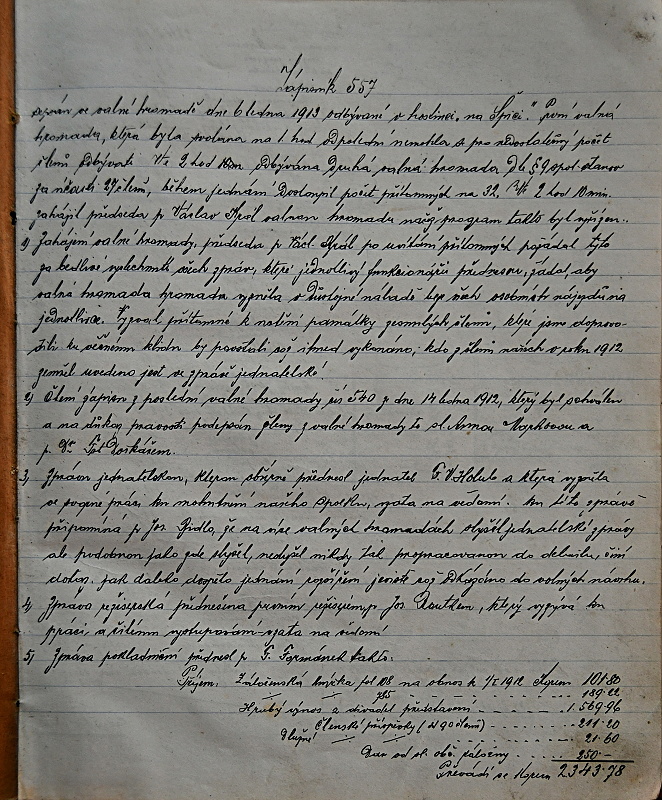 Zápisník 557
správ ve valné hromadě dne 6 ledna 1913 odbývaní v hostinci „na Špici". První valná
hromada, která byla svolána na 1. hod odpolední nemohla se pro nedostatečný počet
členů odbývati. V 2 hod 10m. odbývána druhá valná hromada dle § 9 spol. stanov
za účasti 29 členů, během jednání dostoupil počet přítomných na 32, 2 hod 10 min.
zahájil předseda p. Václav Král valnou hromadu načež program takto byl vyřízen.
1) Zahájení valné hromady, předseda p. Václ. Král po uvítání přítomných požádal tyto
za bedlivé vyslechnutí všech zpráv, které jednotliví funkcionáři přednesou, žádal, aby
valná hromada hromada vyzněla v důstojné náladě bez všech osobních nájezdů na
jednotlivce. Vyzval přítomné k uctění památky zesnulých členů, kteří jsme doprovo-
dili ku věčnému klidu by povstali což ihned vykonáno, kdo z členů našich v roku 1912
zemřel uvedeno jest ve zprávě jednatelské.
2) Čtení zápisu z poslední valné hromady čís 540 z dne 14 ledna 1912, který byl schválen
a na důkaz pravosti podepsán členy z valné hromady to sl. Annou a
p. Fr.
3) Zpráva jednatelskou, kterou obšírně přednesl jednatel F. V. Holub a která vyzněla
ve spojené práci ku mohutnění našeho spolku, vzata na vědomí. ku této zprávě
připomíná p. Jos. Bidlo, že na více valných hromadách slyšel jednatelské zprávy
ale podobnou jako zde slyšel, neslyšel nikdy, tak propracovanou do detailu, činí
dotaz. jak daleko dospělo jednání jeviště což odkázáno do volných návrhů.
4) Zpráva režisérská přednesena prvním režisérem p. Jos. Koutkem, který vyzývá ku
práci a čilému vystupování vzata na vědomí
5) Zpráva pokladniční přednesl p. F. Formánek takto:
Příjem: Záloženská knížka fol 108 na obnos k 1/I 1912 Korun 101·80
— " — 785 — " — 189·22
Hrubý výnos z divadel. představení 1.569·96
Členské příspěvky (od 90 členů) 211·20
Dlužné — " — 21·60
Dar od sl. obč. záložny 250·—
Převádí se Korun 2343·78